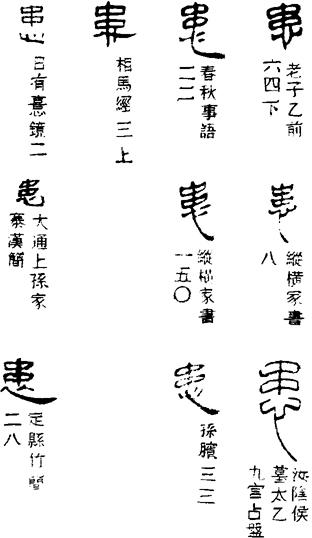 患
老子乙前
六四下
患
春秋事語
二二
患
相馬經三上
患
日有憙鏡二
患
縱橫家書
八
患
縱橫家書
一五〇
患
大通上孫家
寨漢簡
患
汝陰侯
墓太乙
九宮占盤
患
孫臏三三
患
定縣竹簡
二八